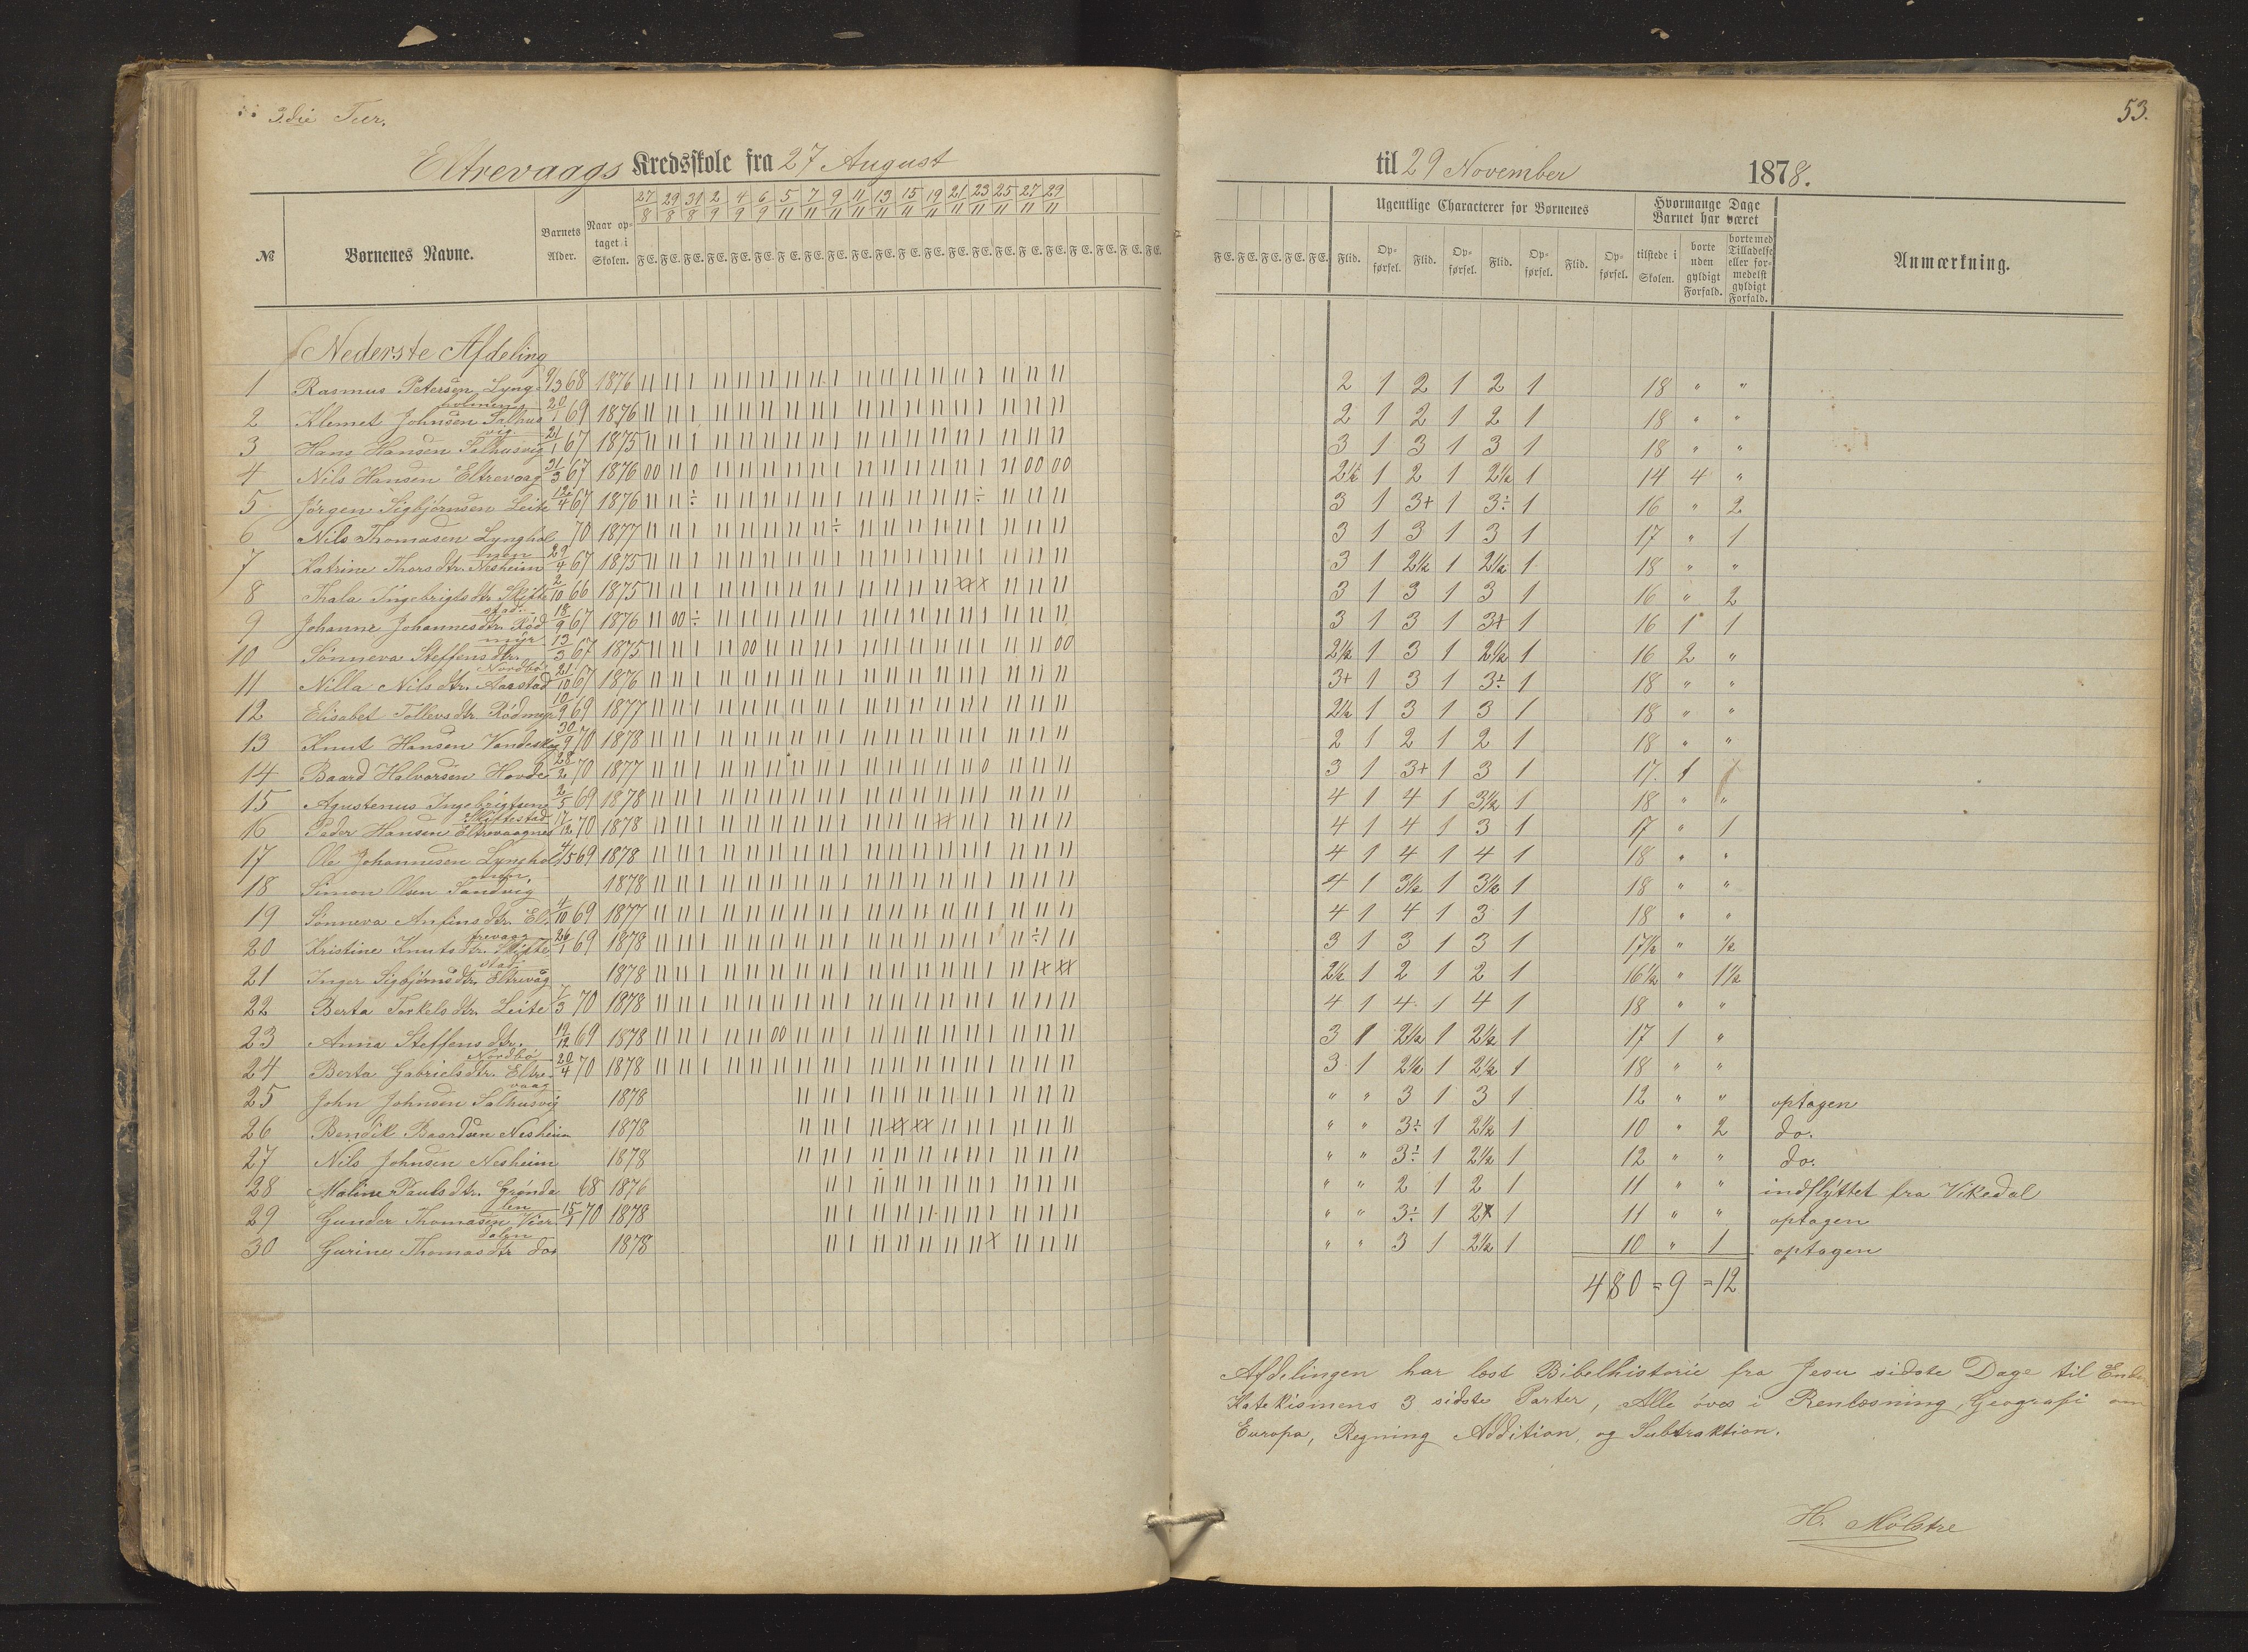 3die Tur.
53.
Eltrevaags Kredsskole fra 27 August til 29 November 1878.
27/8 29/8 31/8 2/9 4/9 6/9 5/11 7/11 9/11 11/11 13/11 15/11 19/11 21/11 23/11 25/11 27/11 29/11
№ Børnenes Navne. Barnets Alder. Naar optaget i Skolen. F E. F E. F E. F E. F E. F E. F E. F E. F E. F E. F E. F E. F E. F E. F E. F E. F E. F E. F E. F E. F E. F E.
F E. F E. F E. F E. F E. Ugentlige Characterer for Børnenes Flid. Opførsel. Flid. Opførsel. Flid. Opførsel. Flid. Opførsel. Hvormange Dage Barnet har været tilstede i Skolen. borte uden gyldigt Forfald. borte med Tilladelse eller formedelst gyldigt Forfald. Anmærkning.
Nederste Afdeling
1 Rasmus Petersen Lyngholmen 9/3 68 1876 2 1 2 1 2 1 18 " "
2 Klemet Johnsen Salhusvig 20/1 69 1876 2 1 2 1 2 1 18 " "
3 Hans Hansen Salhusvig 21/1 67 1875 3 1 3 1 3 1 18 " "
4 Nils Hansen Eltrevaag 31/3 67 1876 2½ 1 2 1 2½ 1 14 4 "
5 Jørgen Sigbjørnsen Leite 12/4 67 1876 3 1 3+ 1 3÷ 1 16 " 2
6 Nils Thomasen Lyngholmen 70 1877 3 1 3 1 3 1 17 " 1
7 Katrine Thorsdtr. Nesheim 29/4 67 1875 3 1 2½ 1 2½ 1 18 " "
8 Thala Ingebrigtsdtr. Skittestad 2/10 66 1875 3 1 3 1 3 1 16 " 2
9 Johanne Johannesdtr. Rødmyr 18/9 67 1876 3 1 3 1 3+ 1 16 1 1
10 Sønneva Steffensdtr. Nordbø 13/3 67 1875 2½ 1 3 1 2½ 1 16 2 "
11 Nilla Nilsdtr. Aarstad 21/10 67 1876 3+ 1 3 1 3÷ 1 18 " "
12 Elisabet Tollevsdtr. Rødmyr 10/9 69 1877 2½ 1 3 1 3 1 18 " "
13 Knut Hansen Vandeskog 30/9 70 1878 2 1 2 1 2 1 18 " "
14 Baard Halvorsen Hovde 28/2 70 1877 3 1 3+ 1 3 1 17. 1
15 Agustenus Ingebrigtsen Skittestad 2/5 69 1878 4 1 4 1 3½ 1 18 " "
16 Peder Hansen Eltrevaagnes 17/12 70 1878 4 1 4 1 3 1 17 " 1
17 Ole Johannesen Lyngholmen 4/5 69 1878 4 1 4 1 4 1 18 " "
18 Simon Olsen Sandvig 1878 4 1 3½ 1 3½ 1 18 " "
19 Sønneva Anfinsdtr. Eltrevaag 4/10 69 1877 4 1 4 1 3 1 18 " "
20 Kristine Knutsdtr. Skittestad 26/1 69 1878 3 1 3 1 3 1 17½ " ½
21 Inger Sigbjørnsdtr. Eltrevåg 1878 2½ 1 2 1 2 1 16½ " 1½
22 Berta Torkelsdtr. Leite 7/3 70 1878 4 1 4 1 4 1 18 " "
23 Anna Steffensdtr. Nordbø 12/12 69 1878 3 1 2½ 1 2½ 1 17 1 "
24 Berta Gabrielsdtr. Eltrevaag 20/4 70 1878 3 1 2½ 1 2½ 1 18 " "
25 John Johnsen Salhusvig 1878 " " 3 1 3 1 12 " " optagen
26 Bendik Baardsen Nesheim 1878 " " 3÷ 1 2½ 1 10 " 2 do.
27 Nils Johnsen Nesheim 1878 " " 3÷ 1 2½ 1 12 " " do.
28 Maline Paulsdtr. Grøndalen 68 1876 " " 2 1 2 1 11 " " indflyttet fra Vikedal
29 Gunder Thomasen 15/1 70 1878 " " 3÷ 1 2 1 11 " " optagen
30 Gurine Thomasdtr do. 1878 " " 3 1 2½ 1 10 " 1 optagen
480 = 9 = 12
Afdelingen har læst Bibelhistorie fra Jesu sidste Dage til Enden
Katekismens 3 sidste Parter, Alle øves i Renlæsning, Geografi om
Europa, Regning Addition, og Subtraktion.
H. Mølstre